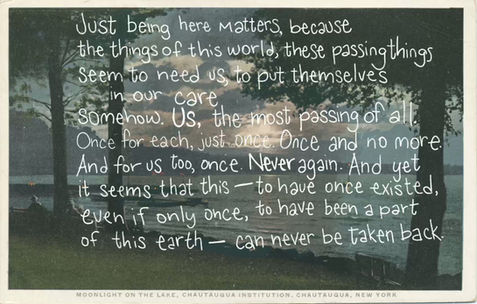 Just being here matters, because
the things of this world, these passing things
seem to need us, to put themselves
in our care
somehow. Us, the most passing of all.
Once for each, just once. Once and no more.
And for us too, once. Never again. And yet
it seems that this — to have once existed,
even if only once, to have been a part
of this earth — can never be taken back.
MOONLIGHT ON THE LAKE, CHAUTAUQUA INSTITUTION, CHAUTAUQUA, NEW YORK